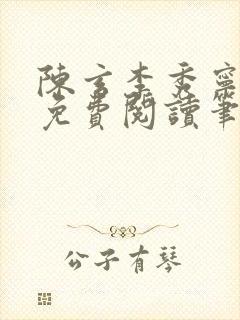 陳玄李秀寧
免費閱讀筆
公子有琴